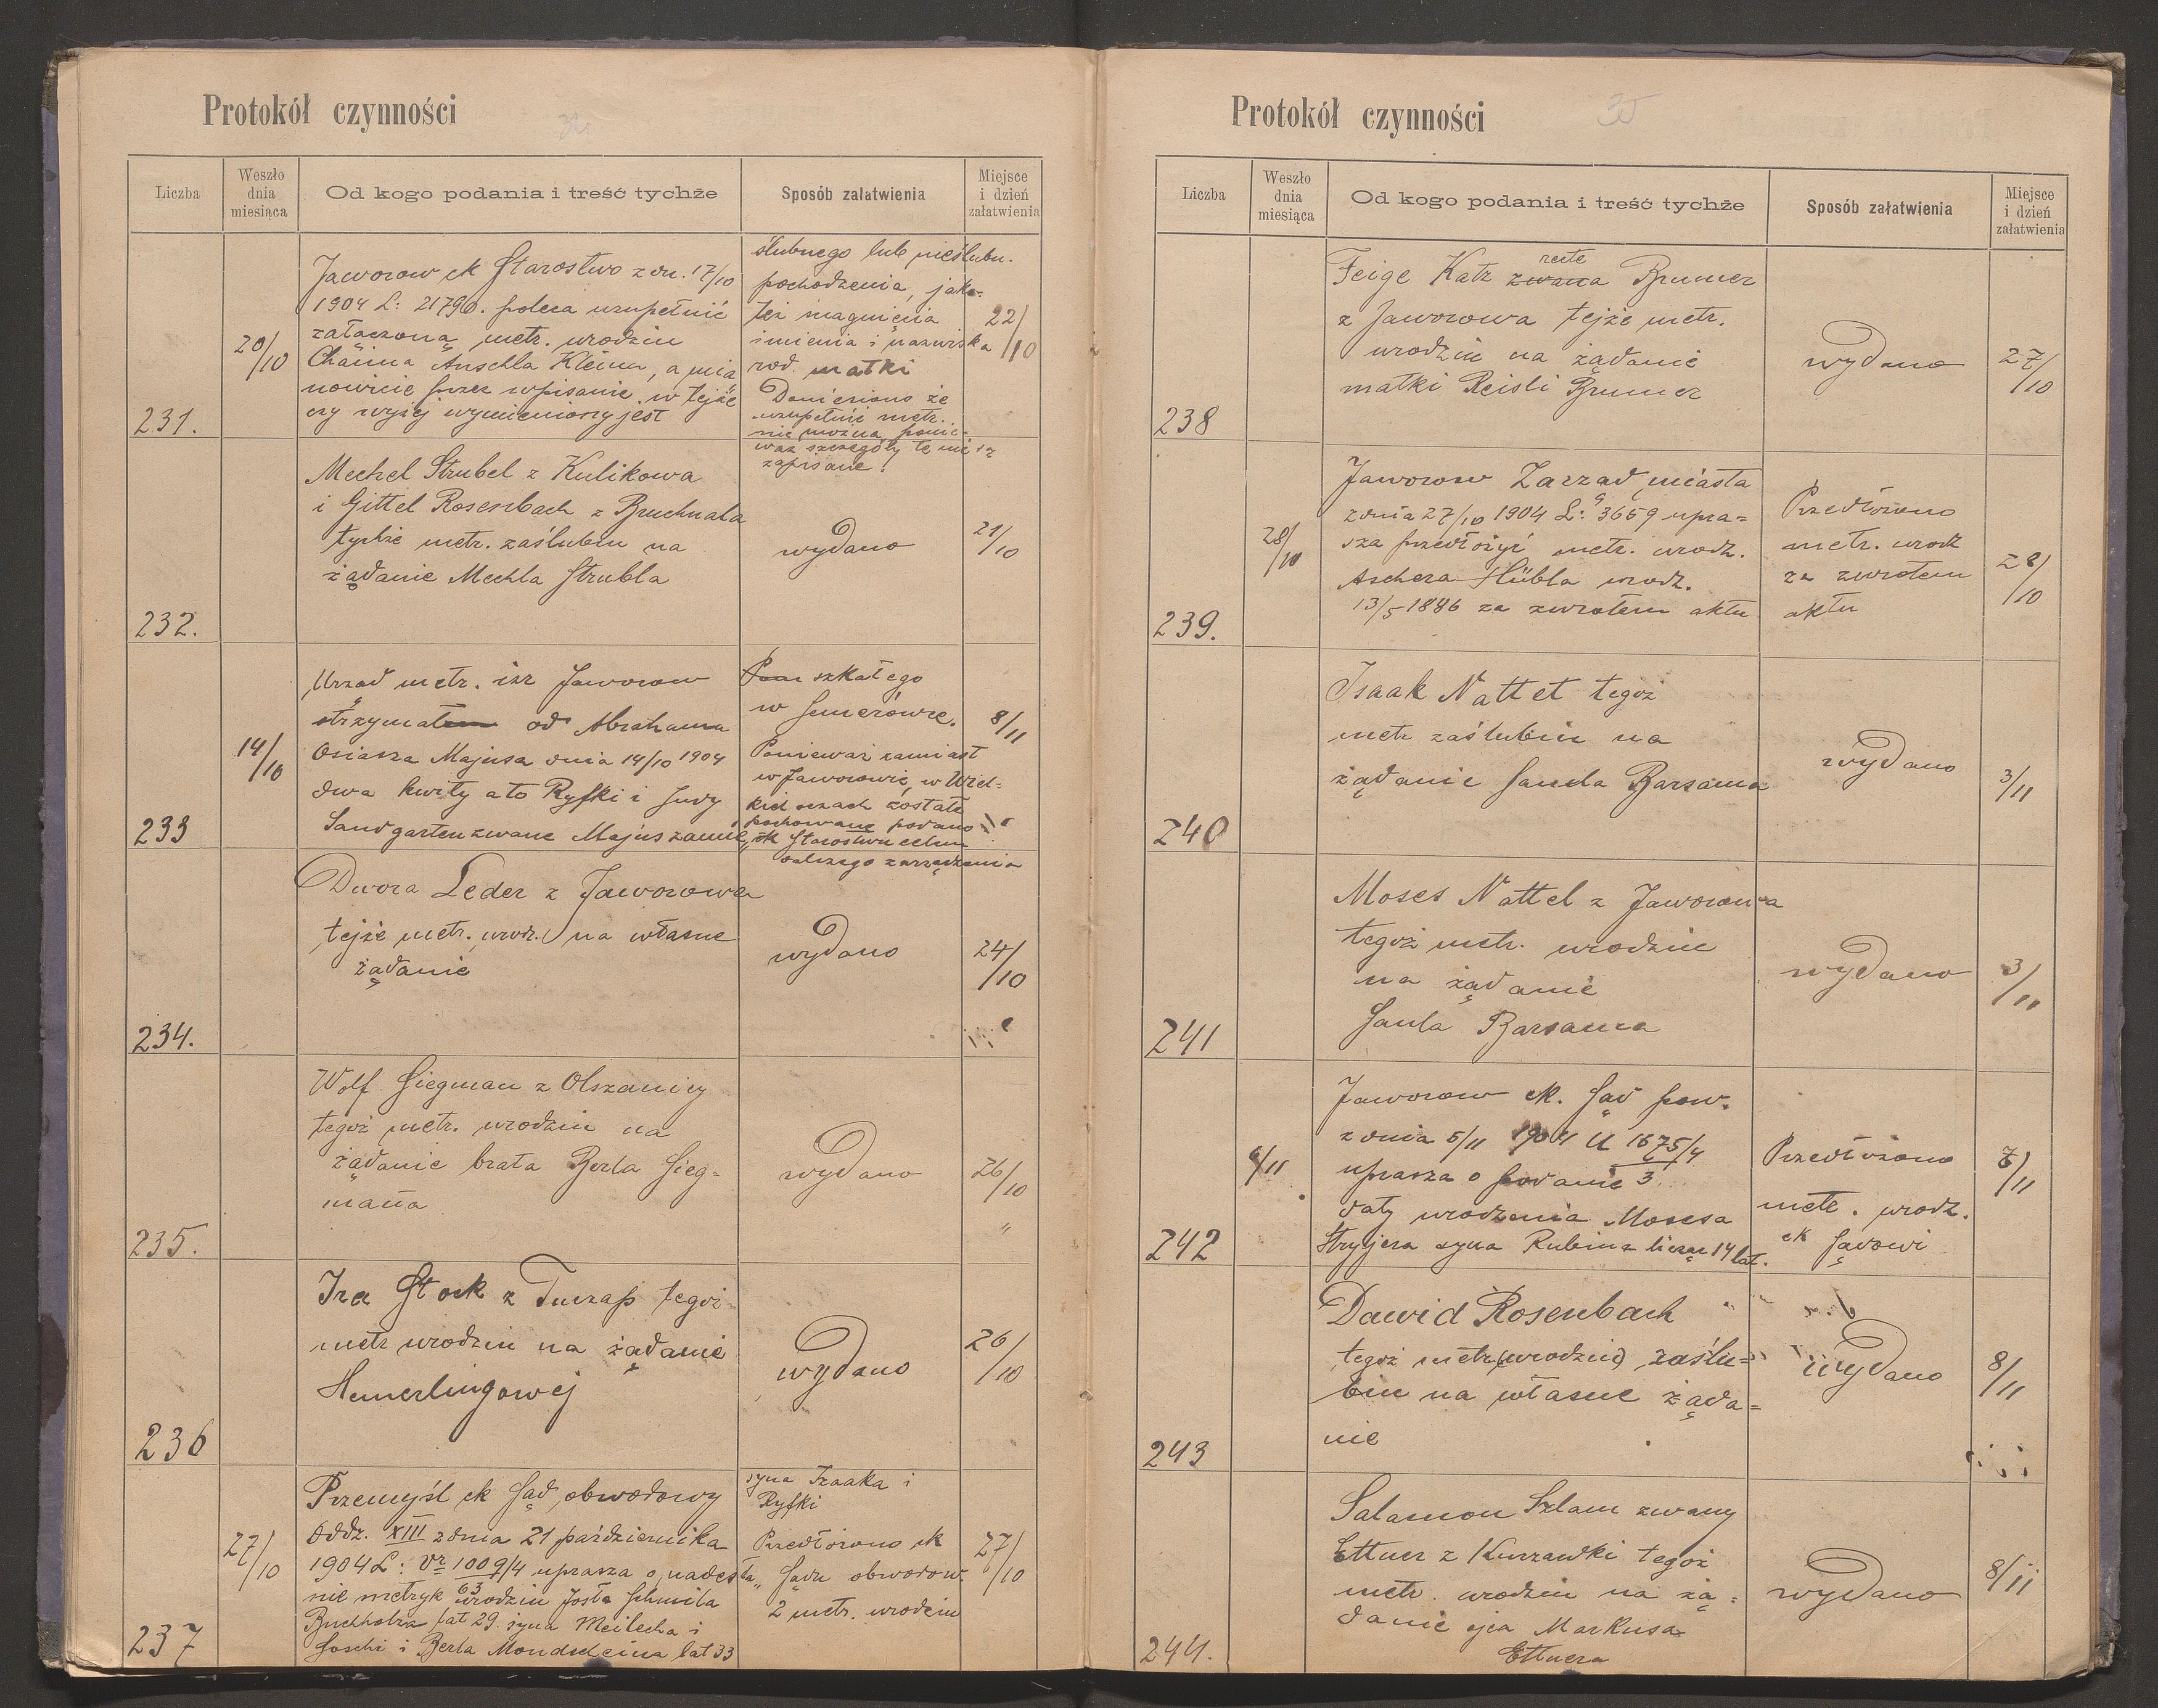 Protokół czynności
Liczba
Weszło dnia miesiąca
Od kogo podania i treść tychże
Sposób załatwienia
Miejsce i dzień załatwienia
231.
20/10
Jaworow ck Starostwo z dn. 17/10
1904 L: 21790. poleca uzupełnić
załączoną metr. urodzin
Chaima Anschla Kleina, a mia
nowicie przez wpisanie w tejże
czy wyżej wymieniony jest
ślubnego lub nieślubn.
pochodzenia, jako-
też imienia i nazwiska
rod. matki
Doniesiono że
uzupełnić metr.
nie można ponie-
waż szczegóły te nie są
zapisane.
22/10
232.
Mechel Strubel z Kulikowa
i Gittel Rosenbach z Bruchnala
tychże metr. zaślubin na
żądanie Mechla Strubla
wydano
21/10
233
14/10
Urząd metr. izr Jaworow
otrzymał od Abrahama
Osiasza Majusa dnia 14/10 1904
dwa kwity a to Ryfki i Judy
Sandgarten zwane Majus zamie„
szkałego
w Semerówce.
Ponieważ zamiast
w Jaworowie, w Wiel-
kich oczach zostałe
pochowane podano
ck Starostwu celem
dalszego zarządzenia
8/11
234.
Dwora Leder z Jaworowa
tejże metr. urodz. na własne
żądanie
wydano
24/10
235.
Wolf Siegman z Olszanicy
tegoż metr. urodzin na
żądanie brata Berla Sieg-
mana
wydano
26/10
236
Ira Stock z Tuczap tegoż
metr urodzin na żądanie
Hemerlingowej
wydano
26/10
237
27/10
Przemyśl ck Sąd obwodowy
Oddz. XIII z dnia 21 października
1904 L: Vr 1009/4 uprasza o nadesła„
63
nie metryk urodzin Josla Schmila
Buchholza lat 29. syna Meilecha i
Soschi i Berla Mondscheina lat 33
syna Izaaka i
Ryfki
Przedłożono ck
Sądu obwodow.
2 metr. urodzin
27/10
Protokół czynności
35
Liczba
Weszło dnia miesiąca
Od kogo podania i treść tychże
Sposób załatwienia
Miejsce i dzień załatwienia
238
recte
Feige Katz zwana Brumer
z Jaworowa tejże metr.
urodzin na żądanie
matki Reisli Brumer
wydano
27/10
239.
28/10
Jaworow Zarząd miasta
z dnia 27/10 1904 L: 3659 upra=
sza przedłożyć metr. urodz.
Aschera Hübla urodz.
13/5 1886 za zwrotem aktu
Przedłożono
metr. urodz
za zwrotem
aktu
28/10
240
Isaak Nattet tegoż
metr zaślubin na
żądanie Saula Barsama
wydano
3/11
241
Moses Nattel z Jaworowa
tegoż metr. urodzin
na żądanie
Saula Barsama
wydano
3/11
242
6/11
Jaworow ck. Sąd pow.
z dnia 5/11 1904 U 1675/4
3
uprasza o podanie
daty urodzenia Mosesa
Stryjera syna Rubina licząc 14 lat.
Przedłożono
metr. urodz.
ck Sądowi
8/11
243
Dawid Rosenbach
tegoż metr (urodzin) zaślu=
bin na własne żąda=
nie
wydano
8/11
244.
Salamon Szlam zwany
Ettner z Kurzawki tegoż
metr. urodzin na żą=
danie ojca Markusa
Ettnera
wydano
8/11